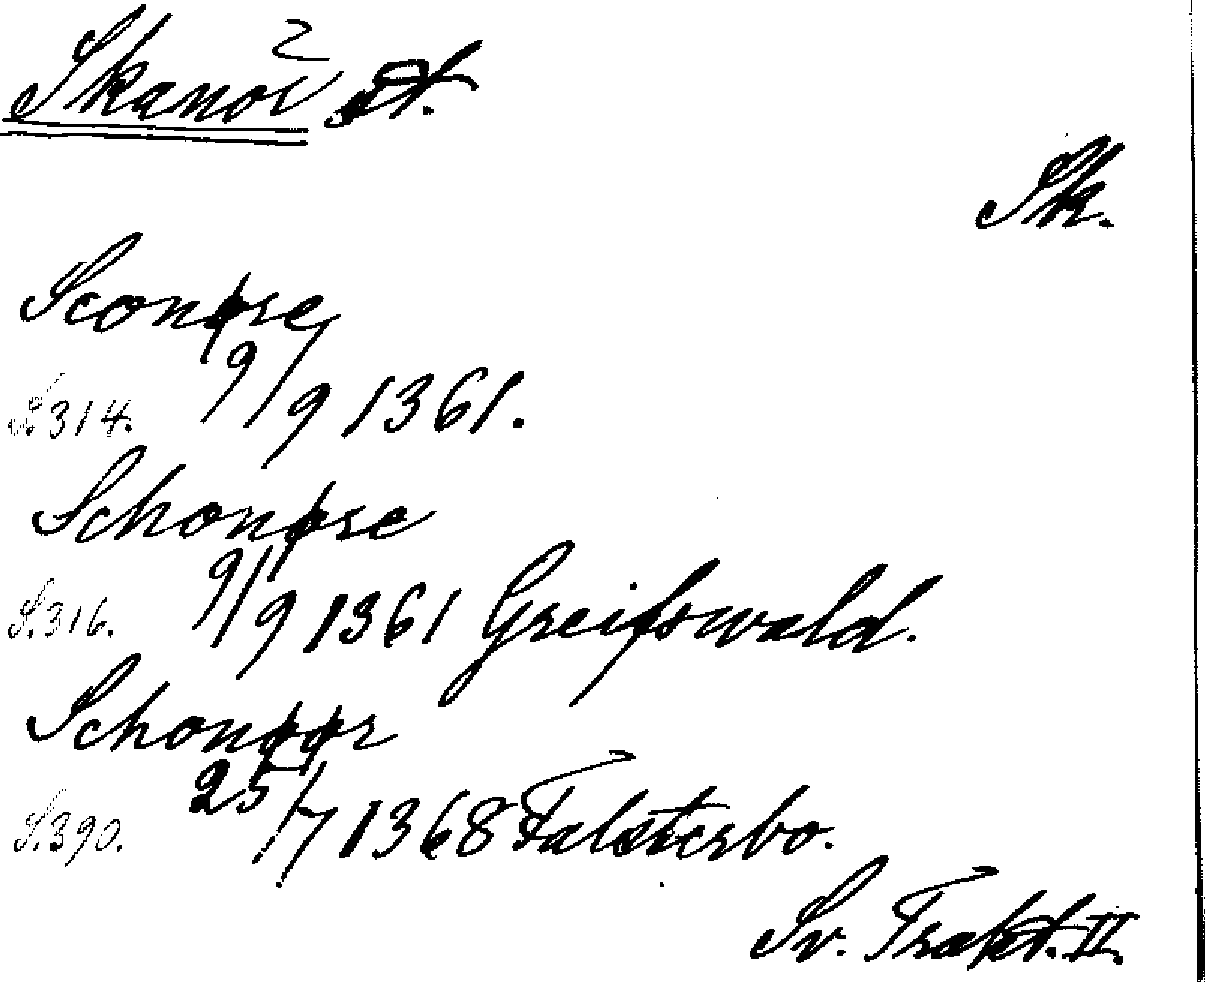 Skanör st.
2
Sk.
Sconøre
S. 314. 9/9 1361.
Schonøre
S. 316. 9/9 1361 Greifswald.
Schonøør
S. 390. 25/7 1368 Falsterbo.
Sv. Trakt. II.